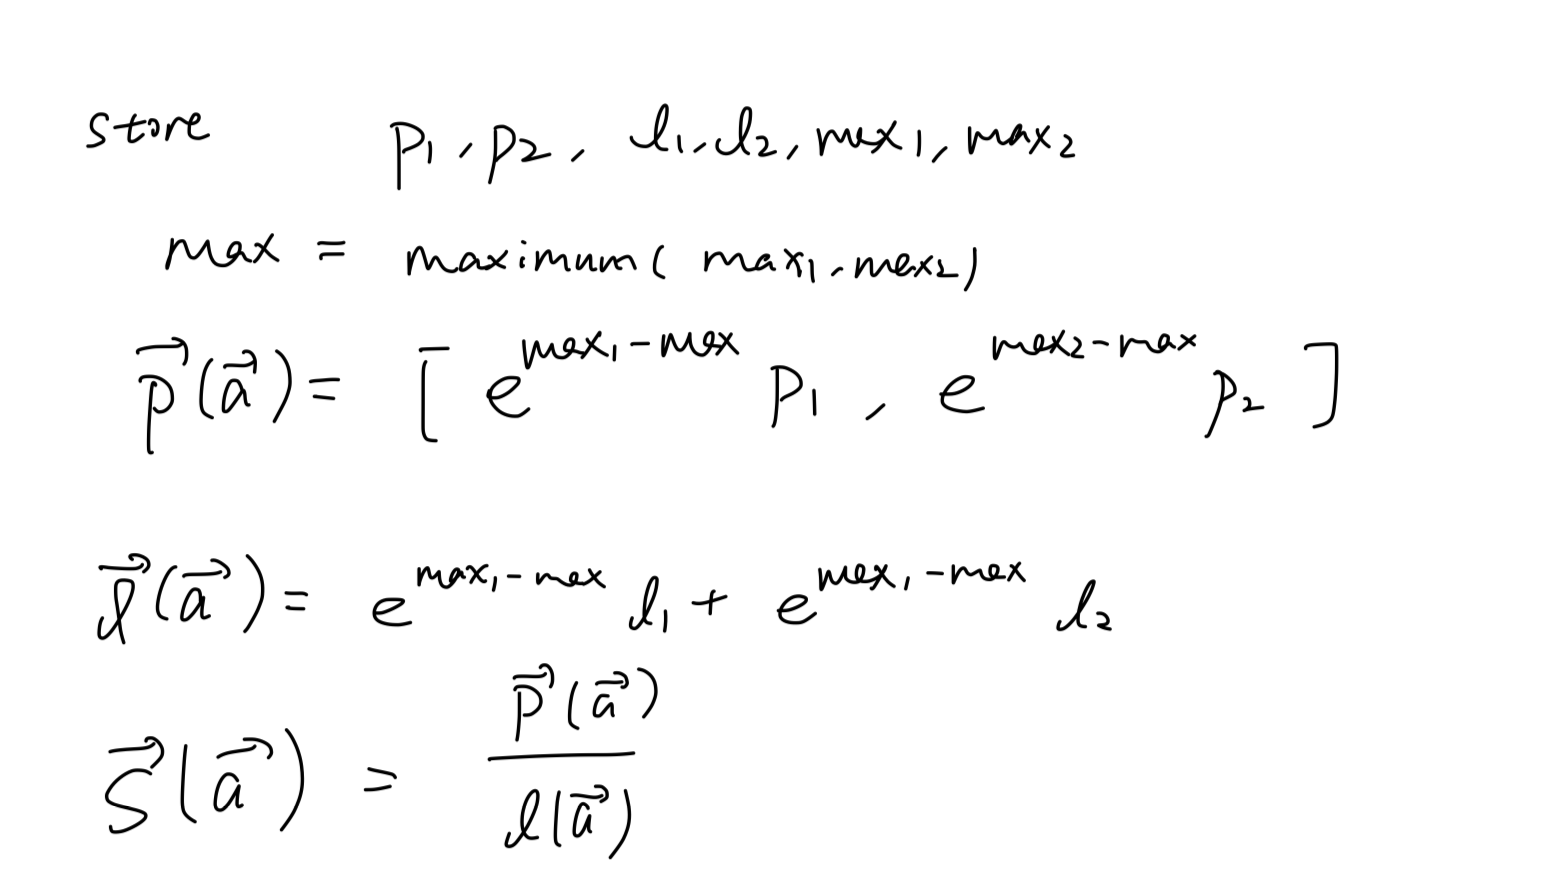 store p₁, p₂, l₁, l₂, max₁, max₂
max = maximum( max₁, max₂)
p⃗(a⃗) = [ e^{max₁-max} p₁, e^{max₂-max} p₂ ]
l⃗(a⃗) = e^{max₁-max} l₁ + e^{max₁-max} l₂
S⃗(a⃗) = \frac{p⃗(a⃗)}{l(a⃗)}